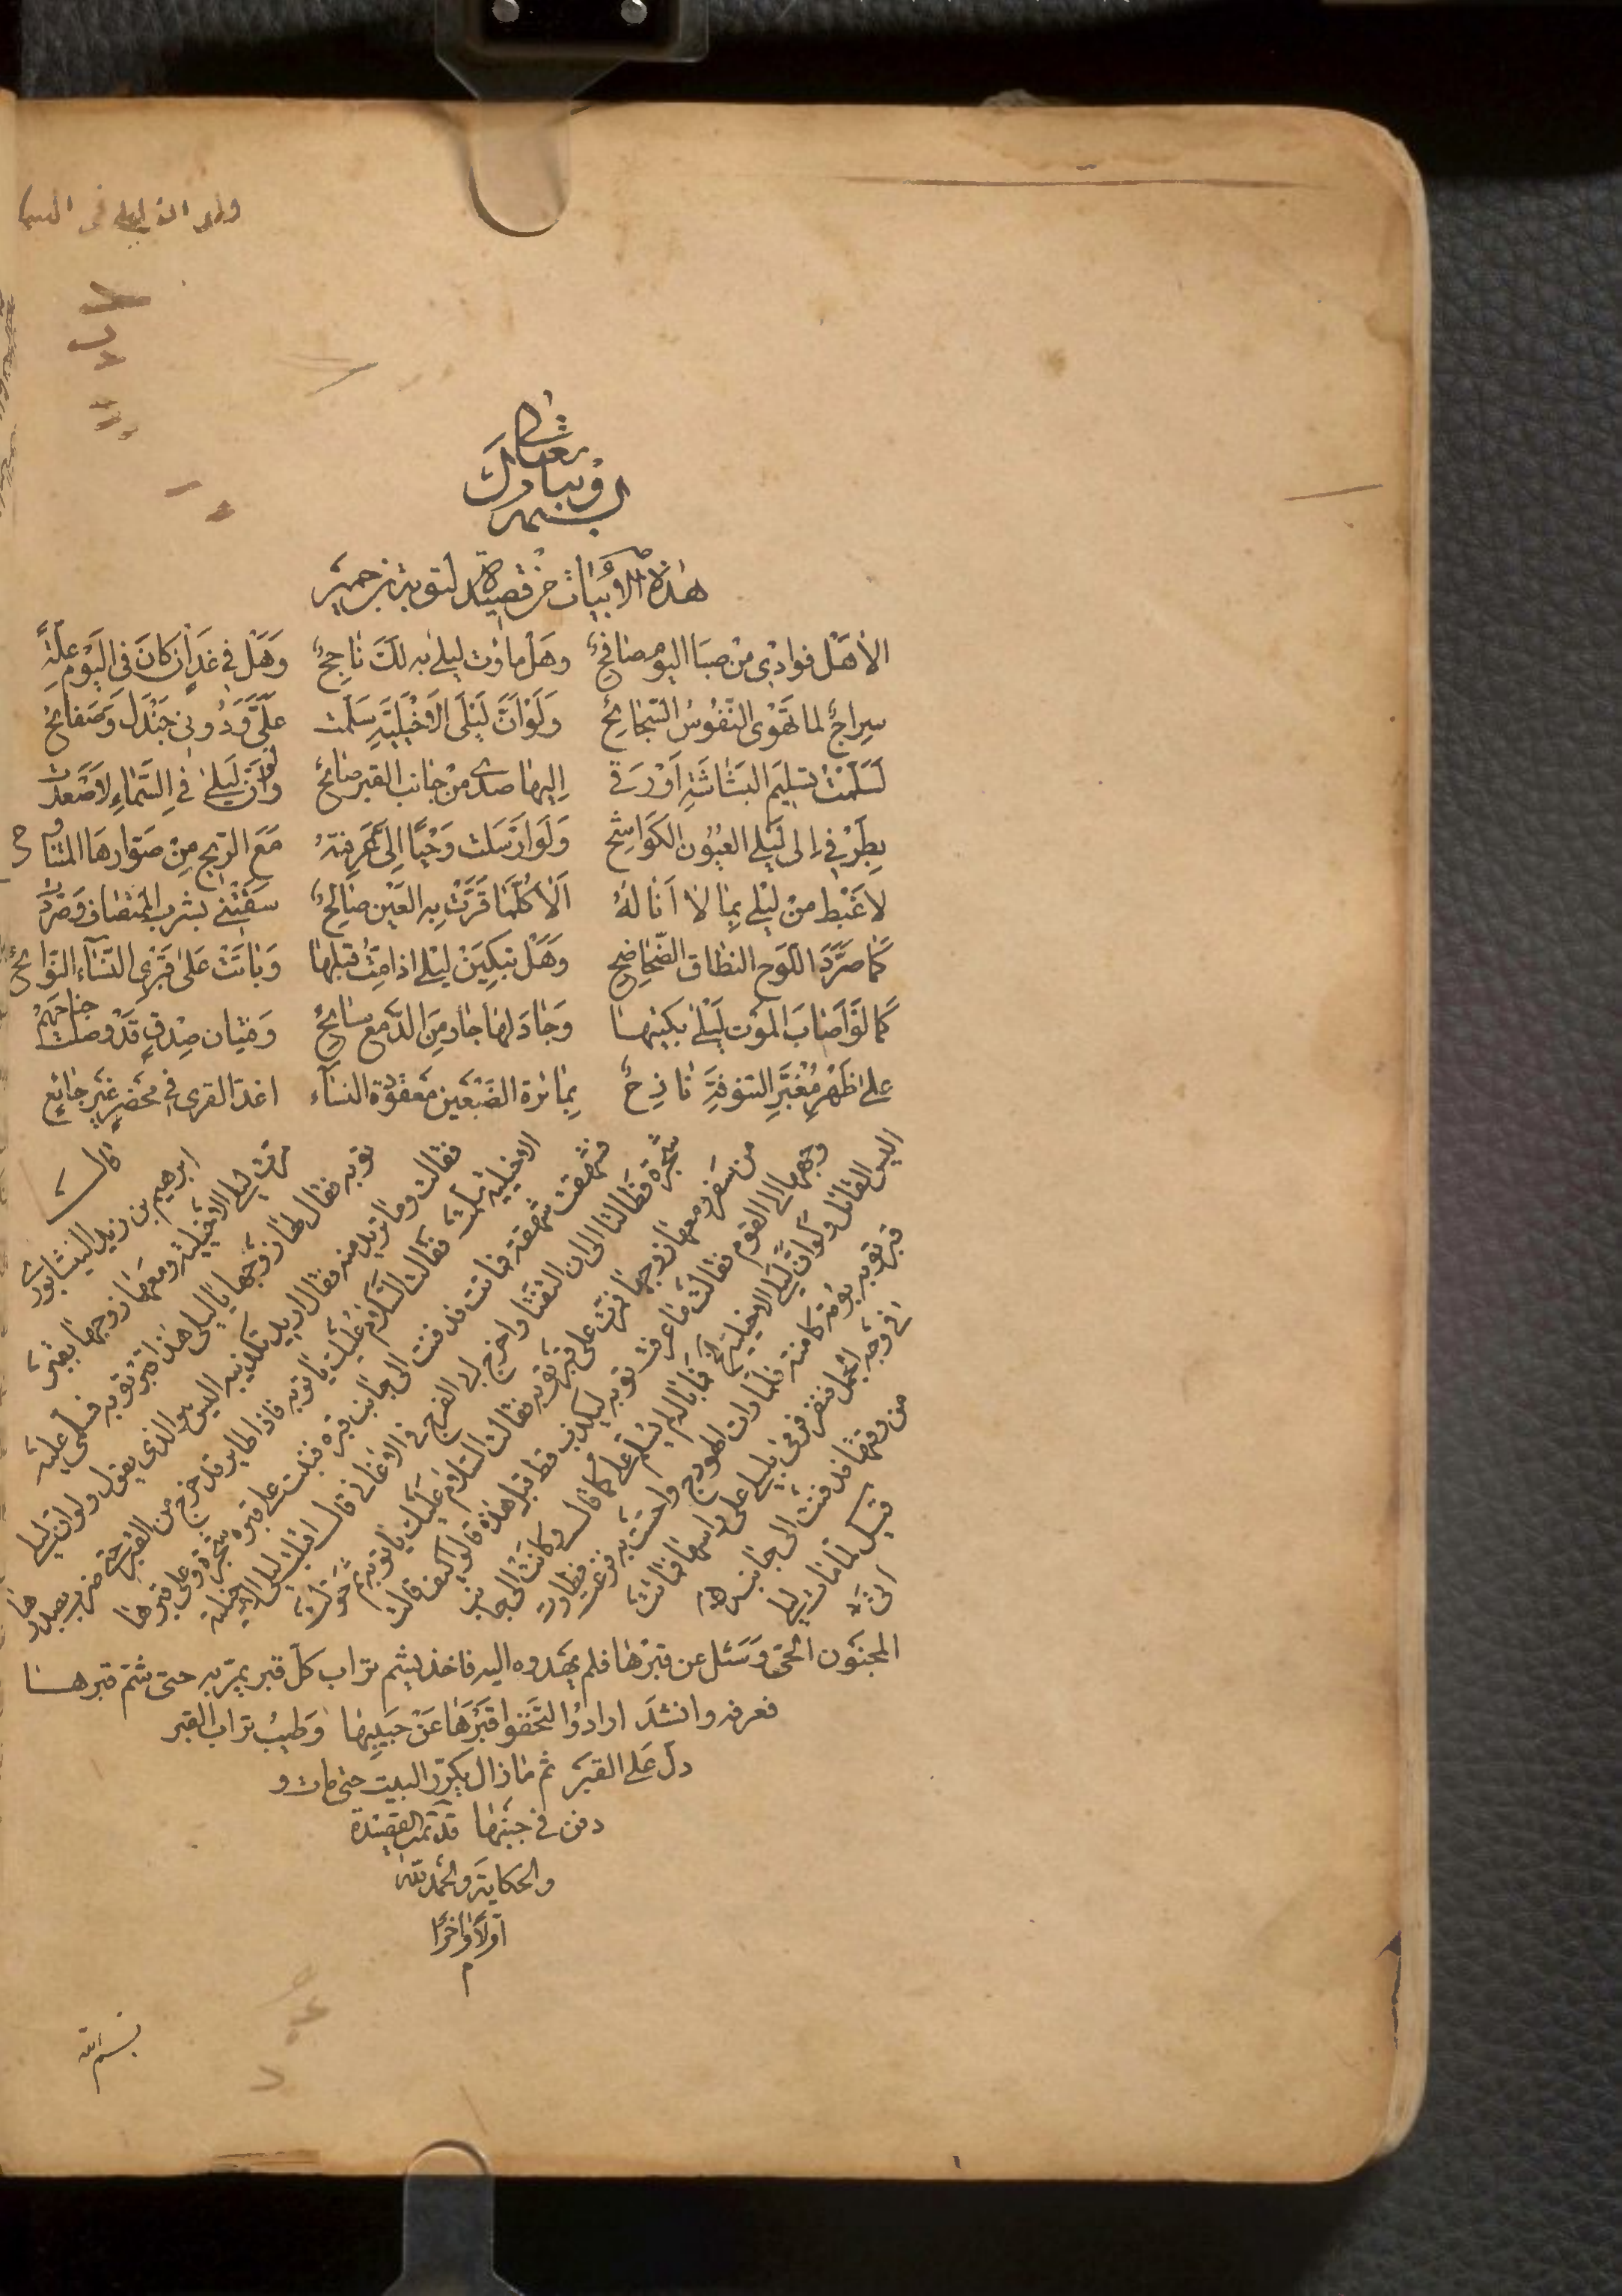 ولو ان ليلى فى السما
بسمه
وتبارك
تعالى
شانه
هذه الأبيات من قصيدة لتوبة بن حمير
الا هل فوادى من صبا اليوم صافح وهل ما وات ليلى به لك ناجح وهل فى غد ان كان فى اليوم علة
سراج لما تهوى النفوس الشحائح ولو ان ليلى الاخيلية سلمت على ودونى جندل وصفائح
لسلمت تسليم البشاشة او زقى اليها صدى من جانب القبر صائح ولو ان ليلى فى السماء لاصعدت
بطرفى الى ليلى العيون الكواشح ولو ارسلت وحيا الى عرفته مع الريح من صوارها المتناوح
لاغبط من ليلى بما لا اناله الا كلما قرت به العين صالح سقتنى بشرب المتضاف فصردت
كما صرد اللوح النطاق الضحاضح وهل تبكين ليلى اذا مت قبلها وبانت على قبرى النساء النوائح
كما لو اصاب الموت ليلى بكيتها وجاد لها جار من الدمع سائح وفتيان صدق قد وصلت جناحهم
على ظهر مغبر التنوفة نازح بمائرة الضبعين معقودة النساء اغد القرى فى محضر غير جائع
قال
ابرهيم بن زيد النيشابورى
مرت ليلى الاخيلية ومعها زوجها بقبر
توبه فقال لها زوجها يا ليلى هذا قبر توبه فسلمى عليه
فقالت وما تريد منه فقال اريد تكذيبه اليس هو الذى يقول ولو ان ليلى
الاخيلية سلمت فقالت السلام عليك يا توبه فاذا طاير قد خرج من القبر حتى ضرب بصدرها
فشهقت شهقة فماتت فدفنت الى جانب قبره فنبتت على قبره شجرة وعلى قبرها
شجرة فطالتا الى ان التفتا واخرج ابو الفرج فى الاغانى قال اقبلت ليلى الاخيلية
من سفر ومعها زوجها فمرت على قبر توبه فقالت السلام عليك يا توبه ثم حولت
وجهها الى القوم فقالت ما عرفت توبه ليكذب قط قبل هذه قالوا كيف قالت
اليس القائل ولو ان ليلى الاخيلية الخ فما باله لم يسلم على كما قال وكانت الى جانب
قبر توبه بومة كامنة فلما رات الهودج واحست به فزعت فطارت
فى وجه الجمل فنفر فرمى بليلى على راسها فماتت
من وقتها فدفنت الى جانبه
قيل لما مات ليلى
اتى
المجنون الحى وسئل عن قبرها فلم يهدوه اليه فاخذ يشم تراب كل قبر يمر به حتى شم قبرها
فعرفه وانشد ارادوا ليخفوا قبرها عن حبيبها وطيب تراب القبر
دل على القبر ثم مازال يكرر البيت حتى مات و
دفن فى جنبها قد تمت القصيدة
والحكاية والحمد لله
اولا واخرا
م
بسم الله